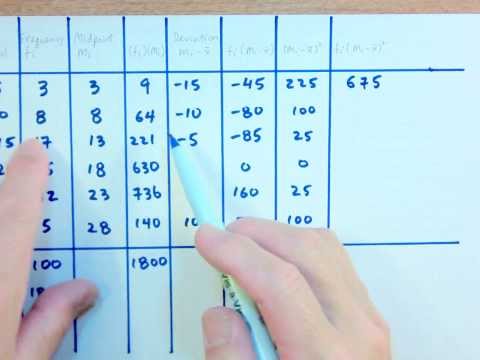 Frequency Midpoint Deviation
fi mi (fi)(mi) mi - x̄ fi(mi - x̄) (mi - x̄)² fi(mi - x̄)²
3 3 9 -15 -45 225 675
8 8 64 -10 -80 100
13 221 -5 -85 25
18 630 0 0
23 736 160 25
5 28 140 10 100
100 1800